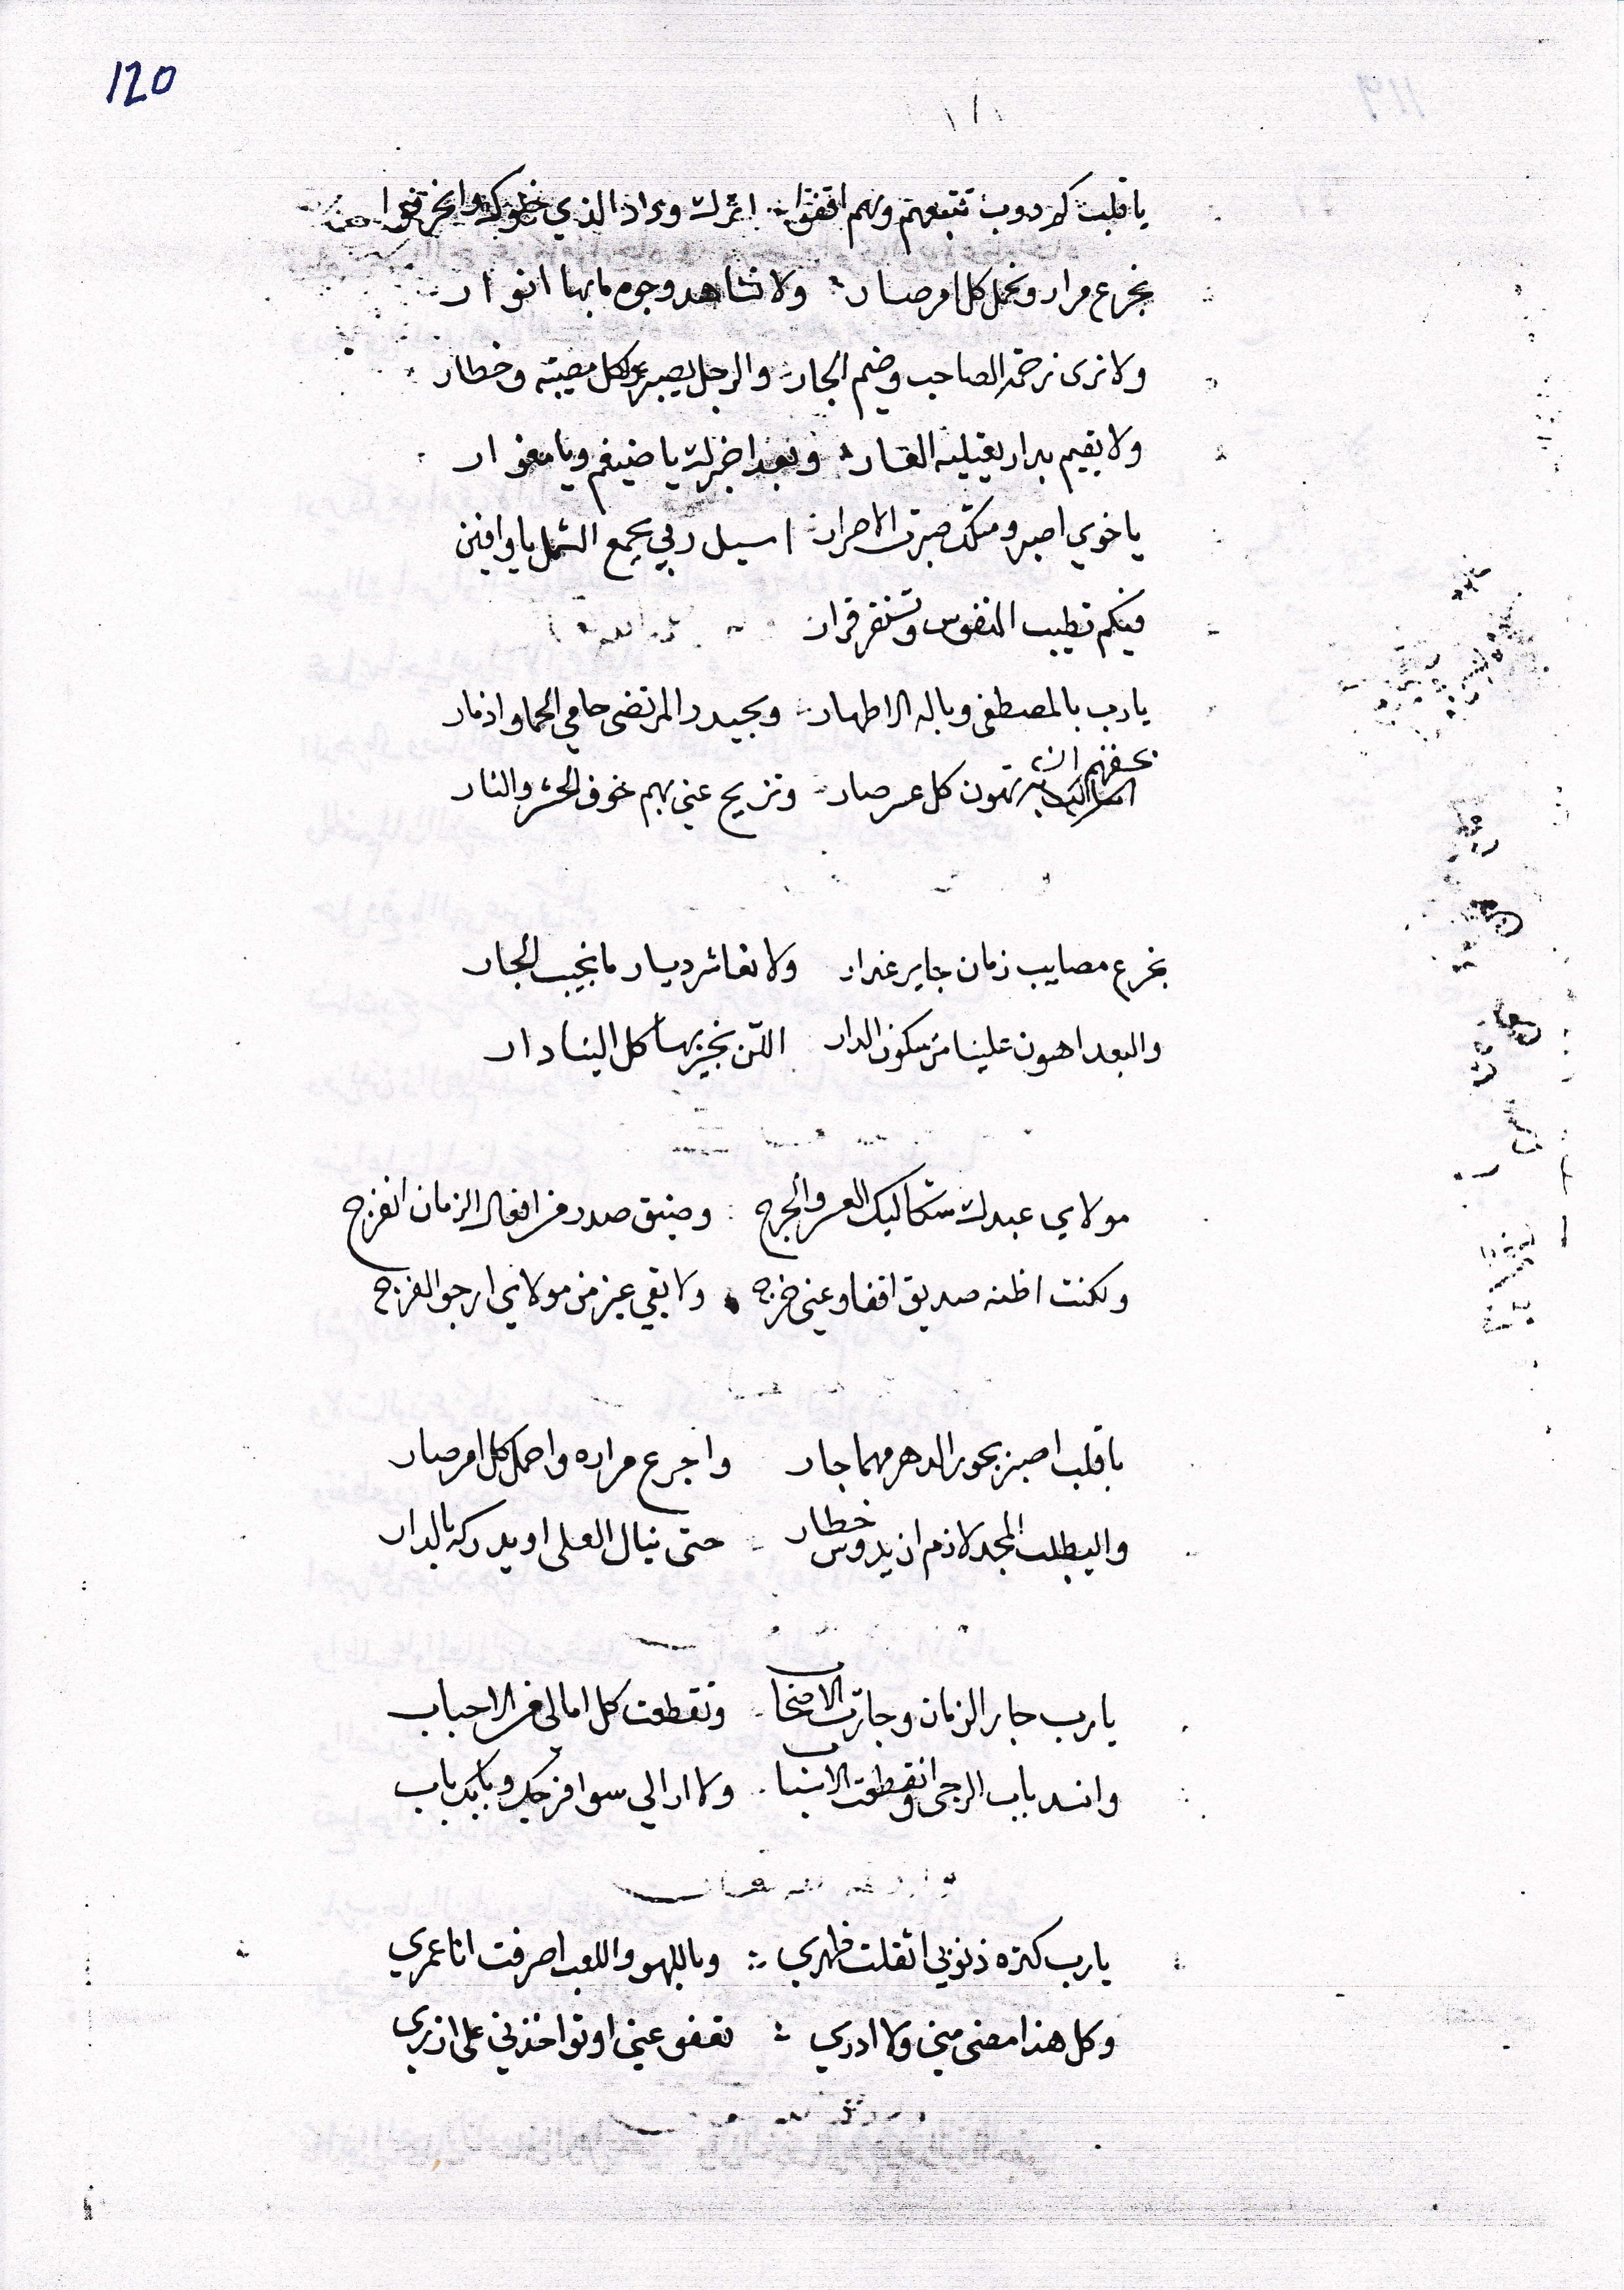 120
يا قلب كم دوب تتبعهم وهم اقفوا اثرك وراد الذي
نجرع مرار ونحمل كل امر صار ولا نشاهد وجوه مابها انوار
ولا نرى نرخه الصاحب وضيم الجار والرجل يصبر كل مصيبه وخطار
ولا يقيم بدار يقتليه العار وبعد اخبرك يا ضيغم ويا مغوار
يا خوي اصبر ومثلك صبرت الاحرار اسيل ربي يجمع الشمل يا وافين
فيكم تطيب النفوس وتستقر قرار
يارب بالمصطفى وباله الاطهار وبحيدر المرتضى حامي الحما واذمار
بحقهم ان تهون كل عسر صار وتزيح عني بهم خوف الحشر والنار
نجرع مصايب زمان جاير غدار ولا نعاشر ديار ما تجيب الجار
والبعد اهون علينا من سكون الدار كل الينا دار
مولاي عبدك شكا ليك العسر والحرج وضيق صدر من افعال الزمان انفرج
ولكنت اظنه صديق اقفا وعني خرج ولا بقي غير من مولاي ارجو الفرج
يا قلب اصبر بجور الدهر مهما جار واجرع مراره واحمل كل امر صار
واليطلب المجد لازم ان يدوس خطار حتى ينال العلى او يدركه بالدار
يارب جار الزمان وجارت الاصحاب وتقطعت كل امالي من الاحباب
وانسد باب الرجى وانقطعت الاسباب ولا ارالي سوا فرجك وبابك باب
يارب كثره ذنوبي اثقلت ظهري وباللهو واللعب اصرفت انا عمري
وكل هذا مضى مني ولا ادري تعفو عني او تواخذني على ازري